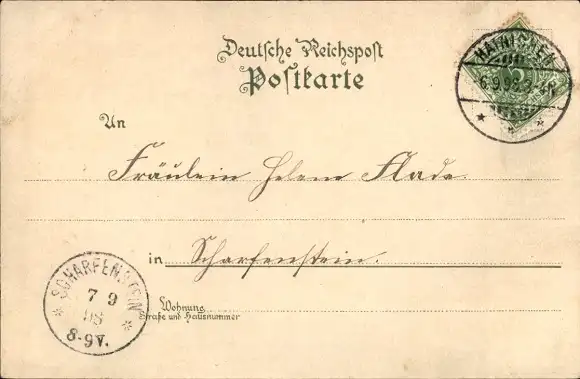 Deutsche Reichspost
Postkarte
HAINICHEN
6.9.98.
An
Fräulein Helene Flade.
in Scharfenstein.
SCHARFENSTEIN
7 9
98
8-9V.
Wohnung
Straße und Hausnummer